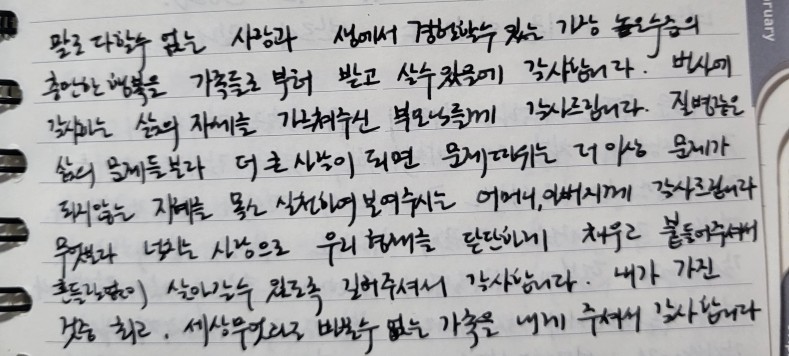 ruary
말로 다할수 없는 사랑과 생에서 경험할수 있는 가장 높은수준의
충만한 행복을 가족들로 부터 받고 살수 있음에 감사합니다. 범사에
감사하는 삶의 자세를 가르쳐주신 부모님께 감사드립니다. 질병같은
삶의 문제들보다 더 큰 사람이 되면 문제따위는 더 이상 문제가
되지않는 지혜를 몸소 실천하여 보여주시는 어머니, 아버지께 감사드립니다
무엇보다 넘치는 사랑으로 우리 형제를 단단하게 채우고 붙들어주셔서
흔들림없이 살아갈수 있도록 길러주셔서 감사합니다. 내가 가진
것중 최고. 세상무엇과도 바꿀수 없는 가족을 내게 주셔서 감사합니다